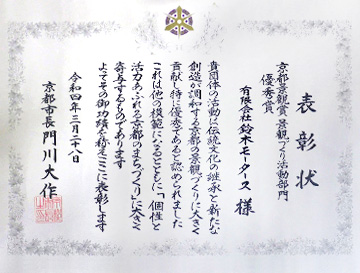 表彰状
京都景観賞 景観づくり活動部門
優秀賞
有限会社鈴木モータース 様
貴団体の活動は伝統文化の継承と新たな
創造が調和する京都の景観づくりに大きく
貢献し特に優秀であると認められました
これは他の模範になるとともに「個性と
活力あふれる京都のまちづくり」に大きく
寄与するものであります
よってその御功績を称えここに表彰します
令和四年三月二十八日
京都市長 門川大作